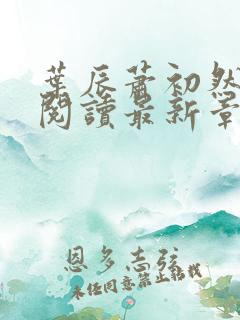 葉辰蕭初然
閱讀最新章
恩多志弦
未經同意禁止轉載